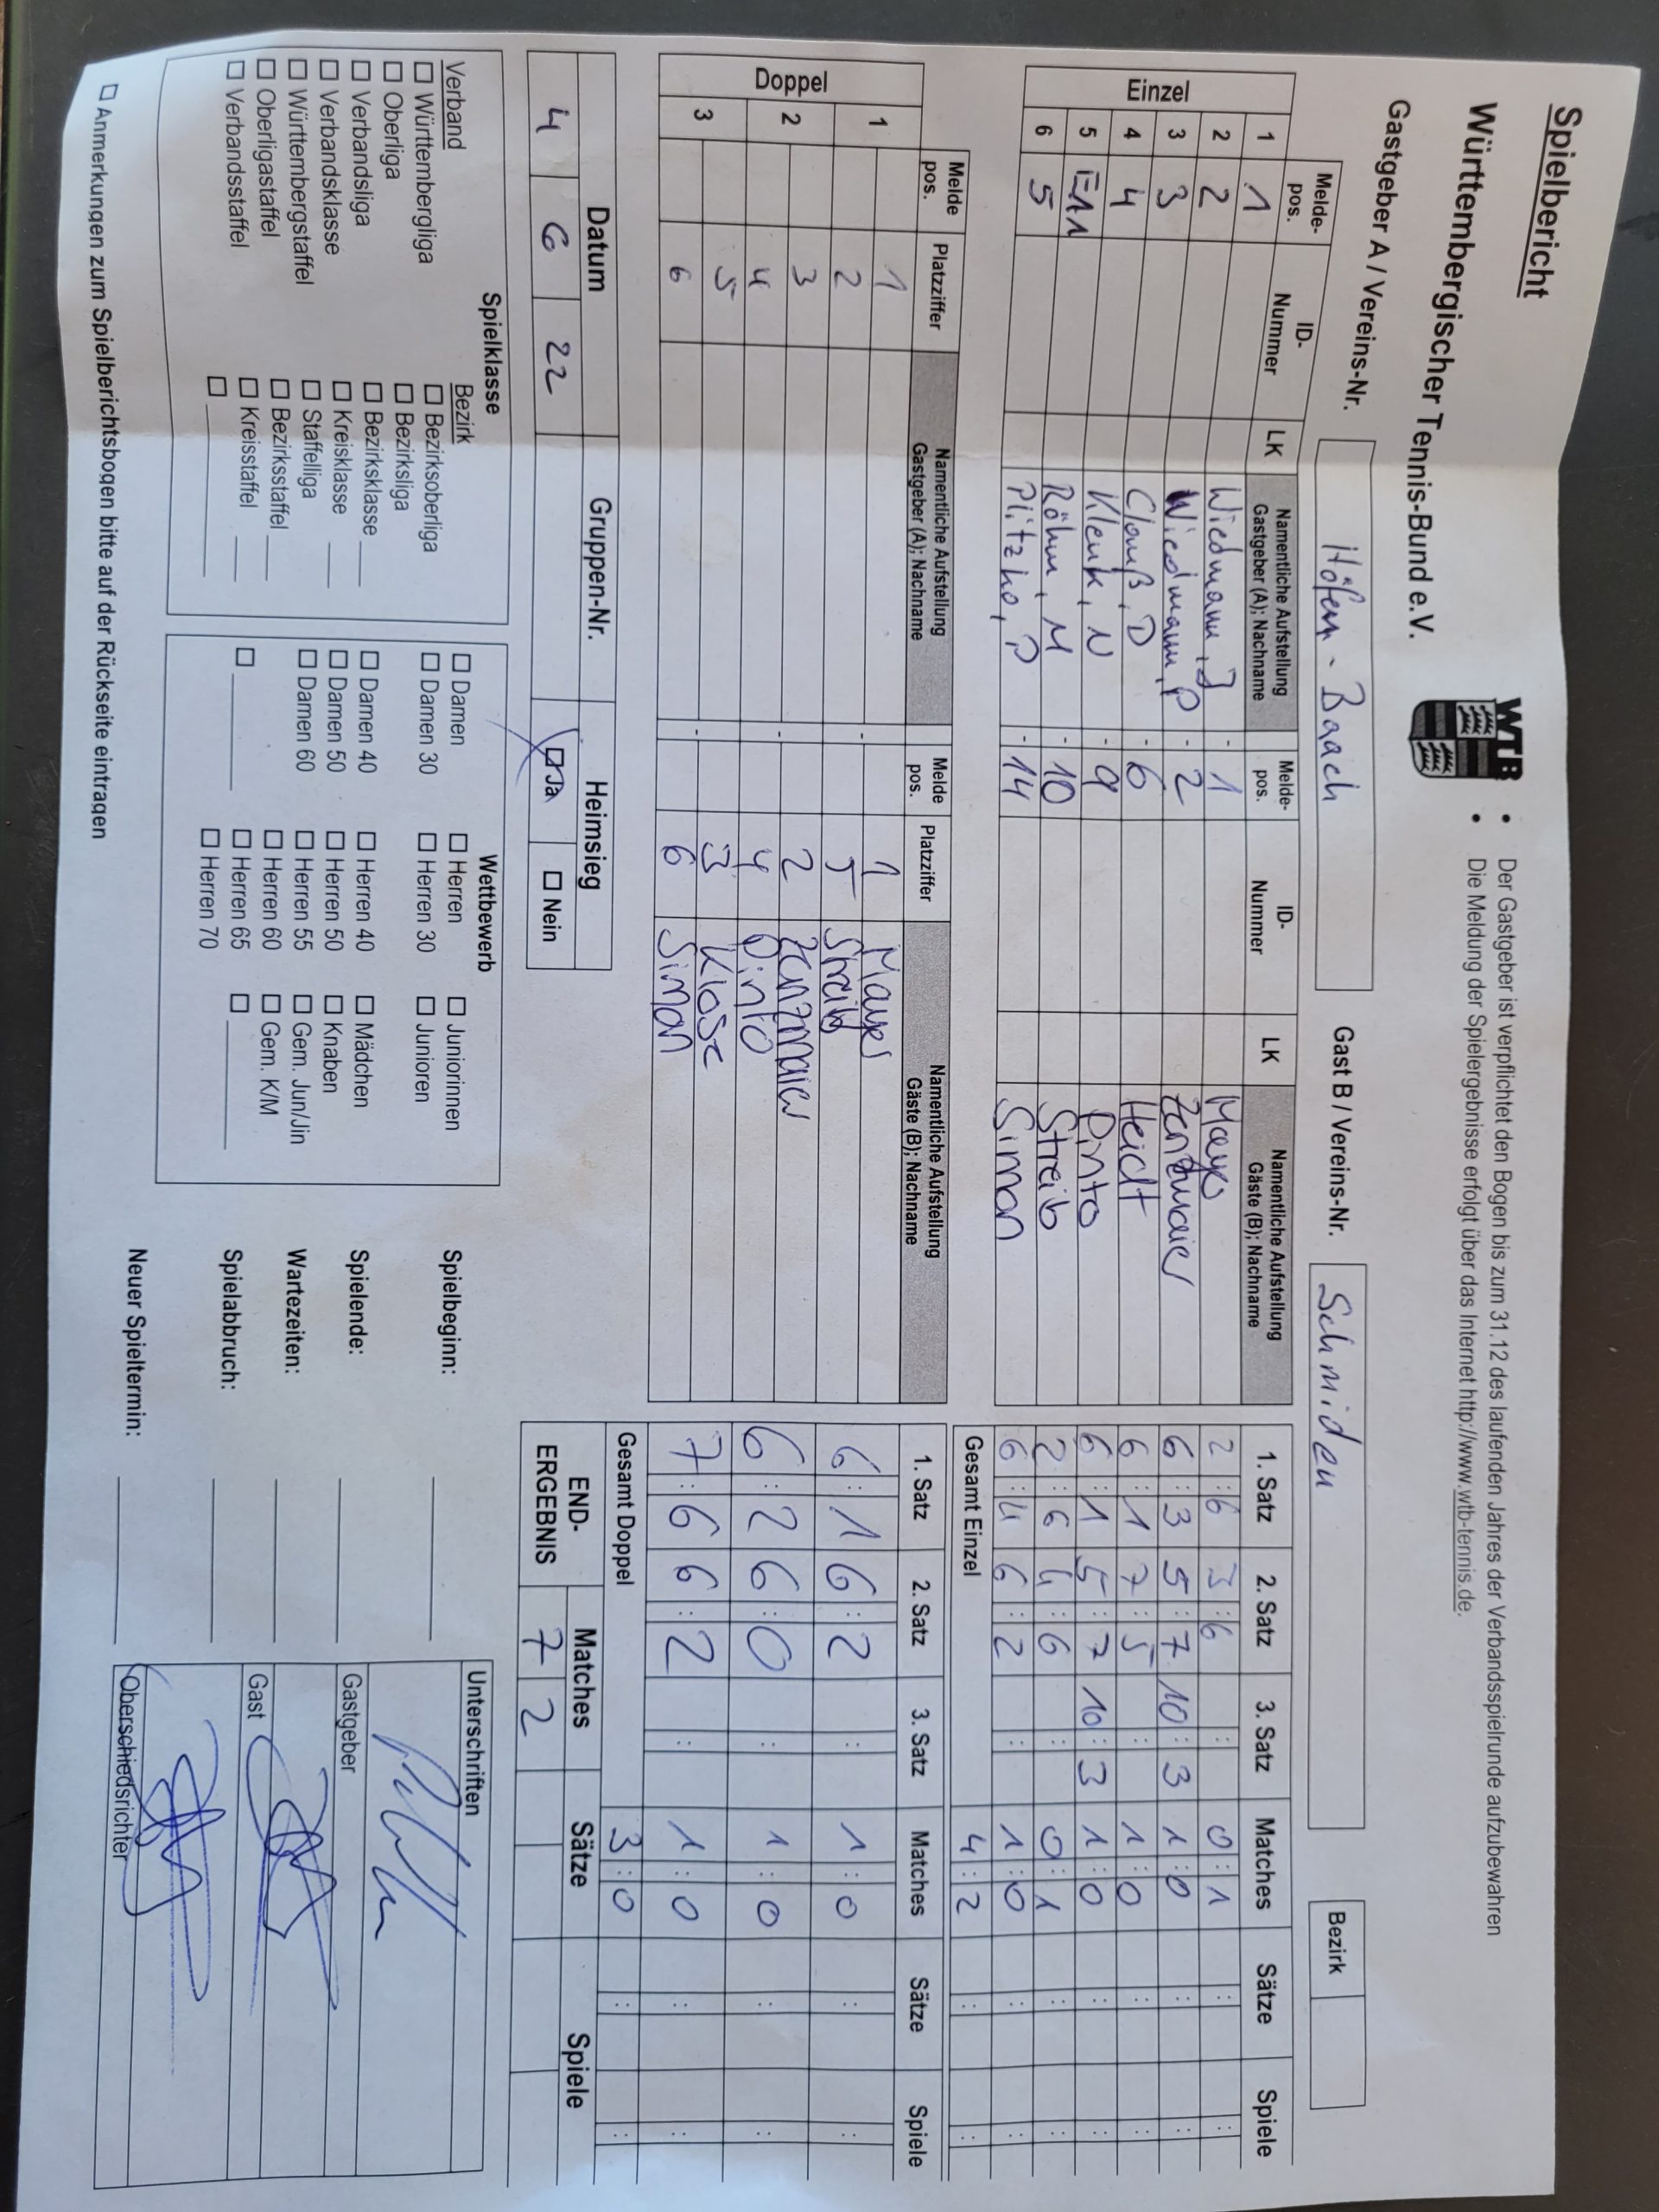 Spielbericht
Württembergischer Tennis-Bund e.V.
WTB
• Der Gastgeber ist verpflichtet den Bogen bis zum 31.12 des laufenden Jahres der Verbandsspielrunde aufzubewahren
• Die Meldung der Spielergebnisse erfolgt über das Internet http://www.wtb-tennis.de.
Gastgeber A / Vereins-Nr. Höfen - Baach Gast B / Vereins-Nr. Schmiden Bezirk
Melde-pos. ID-Nummer LK Namentliche Aufstellung Gastgeber (A); Nachname Melde-pos. ID-Nummer LK Namentliche Aufstellung Gäste (B); Nachname 1. Satz 2. Satz 3. Satz Matches Sätze Spiele
Einzel
1 1 Wiedmann, J - 1 Mayer 2 : 6 3 : 6 : 0 : 1 : :
2 2 Wiedmann, P - 2 Zenzmaier 6 : 3 5 : 7 10 : 3 1 : 0 : :
3 3 Clauß, D - 6 Heidt 6 : 1 7 : 5 : 1 : 0 : :
4 4 Klenk, N - 9 Pinto 6 : 1 5 : 7 10 : 3 1 : 0 : :
5 E11 Röhm, M - 10 Streib 2 : 6 4 : 6 : 0 : 1 : :
6 5 Plitzko, P - 14 Simon 6 : 4 6 : 2 : 1 : 0 : :
Gesamt Einzel 4 : 2 : :
Melde pos. Platzziffer Namentliche Aufstellung Gastgeber (A); Nachname Melde pos. Platzziffer Namentliche Aufstellung Gäste (B); Nachname 1. Satz 2. Satz 3. Satz Matches Sätze Spiele
Doppel
1 1 - 1 Mayer 6 : 1 6 : 2 : 1 : 0 : :
2 5 Streib
2 3 - 2 Zenzmaier 6 : 2 6 : 0 : 1 : 0 : :
4 4 Pinto
3 5 - 3 Klose 7 : 6 6 : 2 : 1 : 0 : :
6 6 Simon
Gesamt Doppel 3 : 0 : :
Datum Gruppen-Nr. Heimsieg
4 6 22 ☐ Ja ☐ Nein
END-ERGEBNIS Matches Sätze Spiele
7 2
Spielklasse
Verband
☐ Württembergliga
☐ Oberliga
☐ Verbandsliga
☐ Verbandsklasse
☐ Württembergstaffel
☐ Oberligastaffel
☐ Verbandsstaffel
Bezirk
☐ Bezirksoberliga
☐ Bezirksliga
☐ Bezirksklasse
☐ Kreisklasse
☐ Staffelliga
☐ Bezirksstaffel
☐ Kreisstaffel
☐
Wettbewerb
☐ Damen ☐ Herren ☐ Juniorinnen
☐ Damen 30 ☐ Herren 30 ☐ Junioren
☐ Damen 40 ☐ Herren 40 ☐ Mädchen
☐ Damen 50 ☐ Herren 50 ☐ Knaben
☐ Damen 60 ☐ Herren 55 ☐ Gem. Jun/Jin
☐ Herren 60 ☐ Gem. K/M
☐ ☐ Herren 65 ☐
☐ Herren 70
Spielbeginn:
Spielende:
Wartezeiten:
Spielabbruch:
Neuer Spieltermin:
Unterschriften
Gastgeber
Gast
Oberschiedsrichter
☐ Anmerkungen zum Spielberichtsbogen bitte auf der Rückseite eintragen